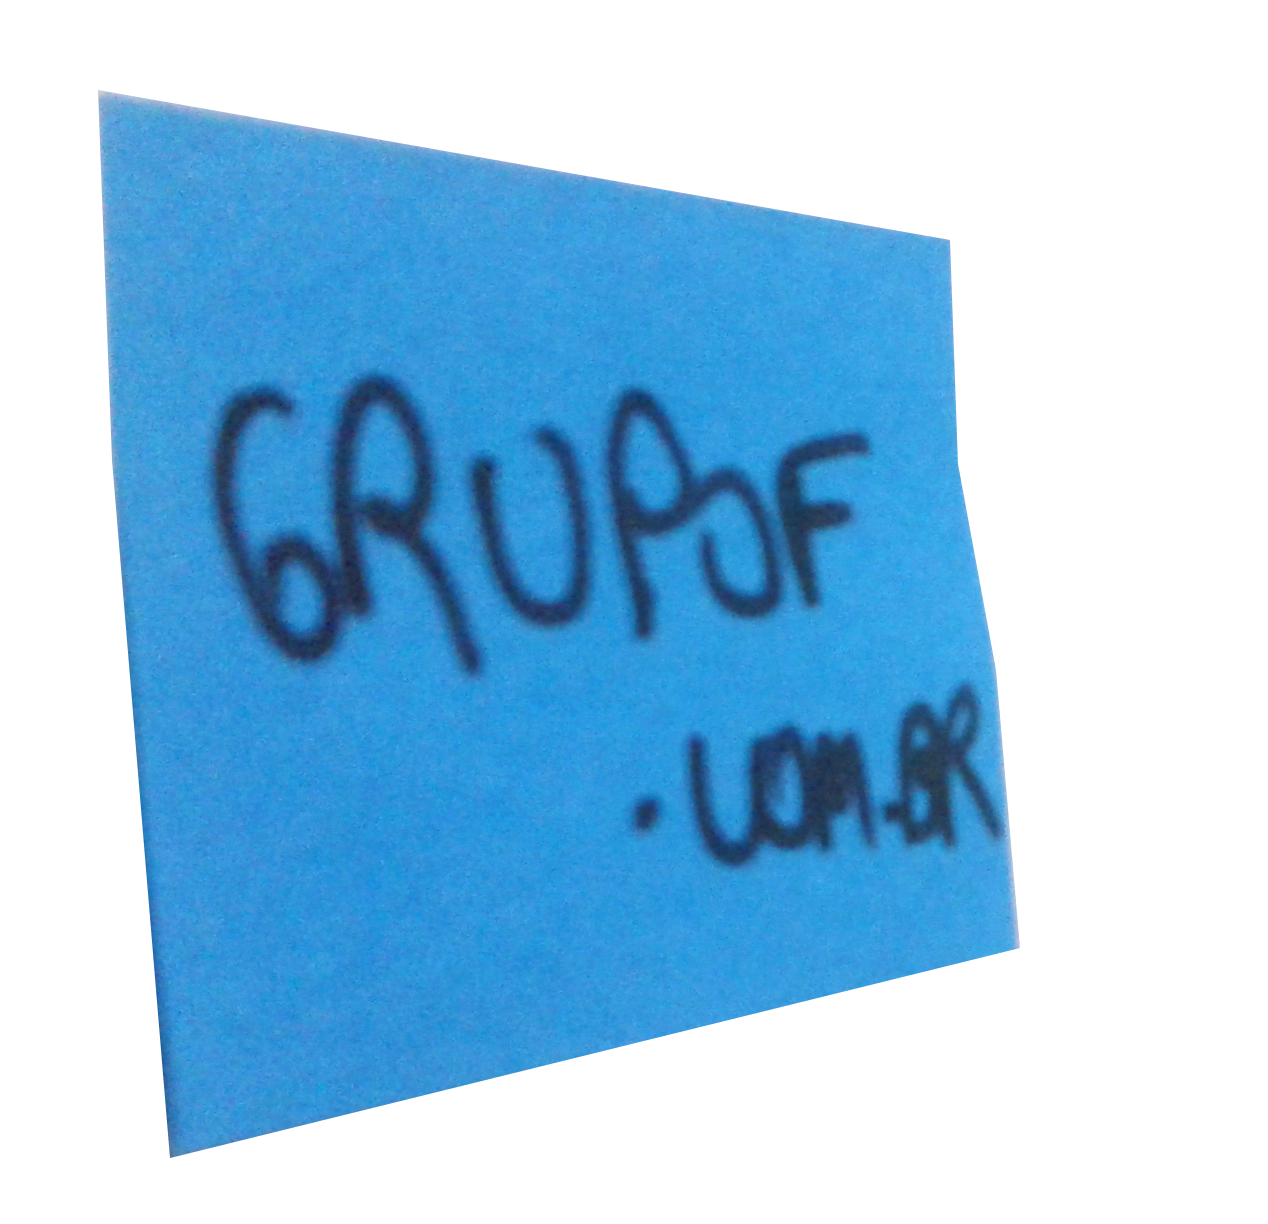 GRUPOF
.COM.BR